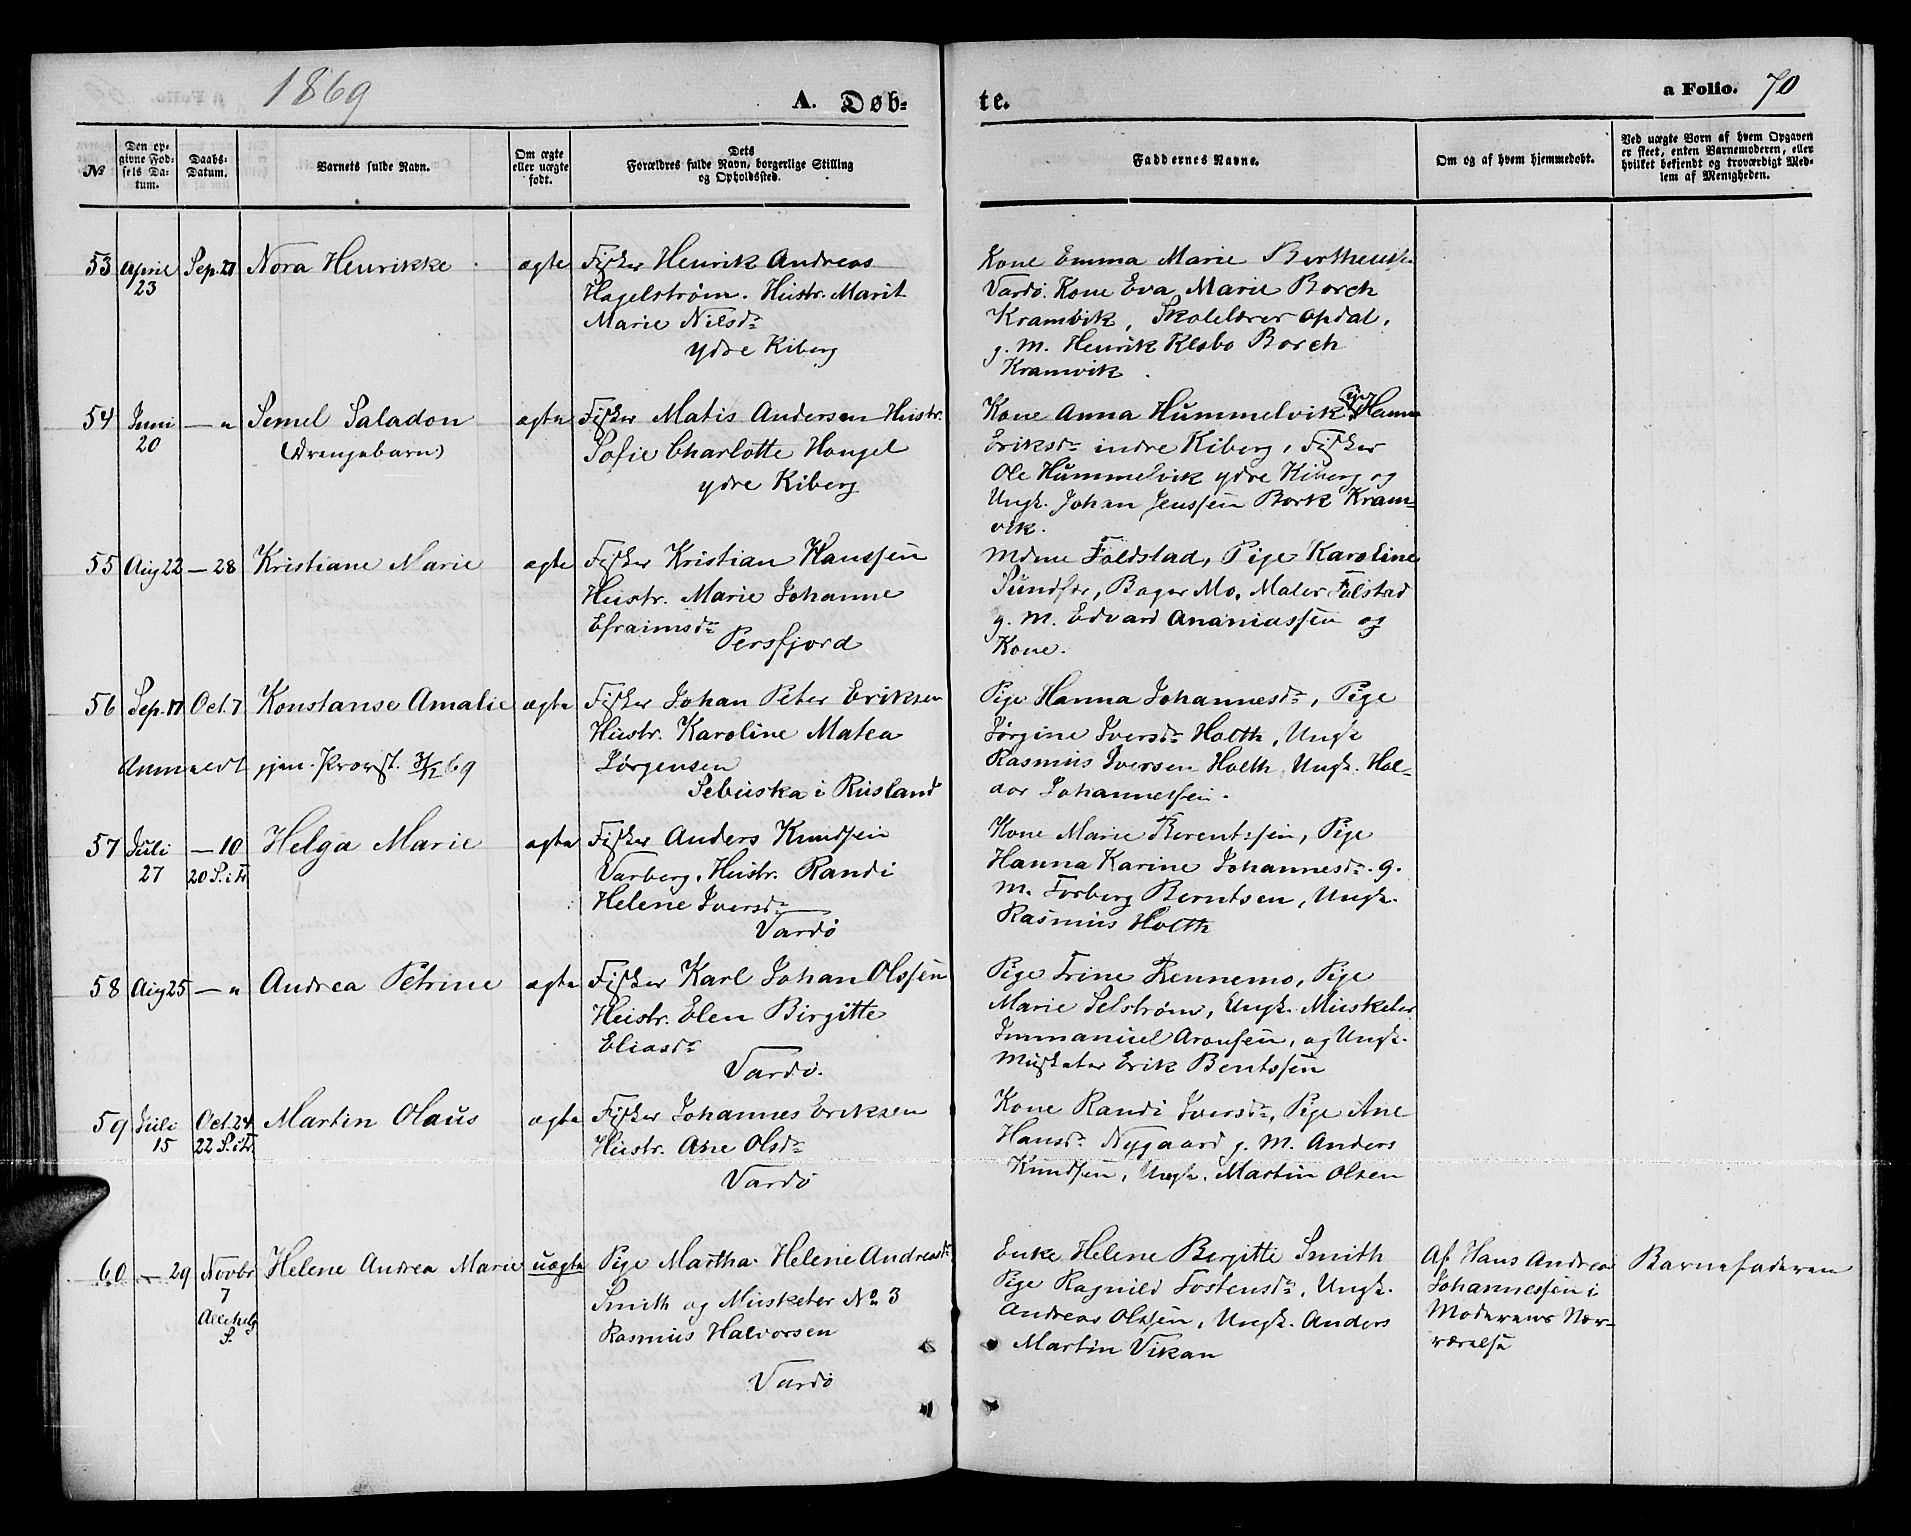 1869
A. Døb-
te.
a Folio. 70
No
Den op-
givne Fød-
sels Da-
tum.
Daabs-
Datum.
Barnets fulde Navn.
Om ægte
eller uægte
født.
Dets
Forældres fulde Navn, borgerlige Stilling
og Opholdssted.
Faddernes Navne.
Om og af hvem hjemmedøbt.
Ved uægte Børn af hvem Opgaven
er skeet, enten Barnemoderen, eller
hvilket bekjendt og troværdigt Med-
lem af Menigheden.
53 April 23 Sep. 27 Nora Henrikke ægte
Fisker Henrik Andreas
Hagelstrøm. Hustr. Marit
Marie Nilsdr
ydre Kiberg
Kone Emma Marie
Vardø. Kone Eva Marie Borch
Kramvik, Skolelærer Opdal,
g. M. Henrik Klebo Borch
Kramvik.
54 Juni 20 — " Semel Saladon ægte
(Drengebarn)
Fisker Matis Andersen Hustr.
Sofie Charlotte Hongel
ydre Kiberg
Kone Anna Hummelvik, Pige Hanna
Eriksdr indre Kiberg, Fisker
Ole Hummelvik ydre Kiberg og
Ungk. Johan Jenssen Bork Kram-
vik.
55 Aug 22 — 28 Kristiane Marie ægte
Fisker Kristian Hanssen
Hustr. Marie Johanne
Efraimsdr
Persfjord
Mdme Foldstad, Pige Karoline
Sundfær, Bager Mo, Maler Folstad
g. M. Edvard Ananiassen og
Kone.
56 Sep. 17 Oct. 7 Konstanse Amalie ægte
Anmeldt gjen. Provst. 31/12 69
Fisker Johan Peter Eriksen
Hustr. Karoline Matea
Jørgensen
Sebuska i Rusland
Pige Hanna Johannesdr, Pige
Jørgine Iversdr Holth, Ungk
Rasmus Iversen Holth, Ungk. Hal-
dor Johannessen.
57 Juli 27 — 10 Helga Marie ægte
20 S. i Tr.
Fisker Anders Knudsen
Varberg, Hustr. Randi
Helene Iversdr
Vardø
Kone Marie Berentssen, Pige
Hanna Karine Johannesdr. g.
M. Forberg Berntsen, Ungk.
Rasmus Holth
58 Aug 25 — " Andrea Petrine ægte
Fisker Karl Johan Olssen
Hustr. Elen Birgitte
Eliasdr
Vardø.
Pige Trine Rennemo, Pige
Marie Selstrøm, Ungk. Musketer
Immanuel Aronsen, og Ungk.
Musketer Erik Bentssen
59 Juli 15 Oct. 24 Martin Olaus ægte
22 S. i Tr.
Fisker Johannes Eriksen
Hustr. Ane Olsdr
Vardø
Kone Randi Iversdr, Pige Ane
Hansdr Nygaard g. M. Anders
Knudsen, Ungk. Martin Olsen
60 — 29 Novbr 7 Helene Andrea Marie uægte
Allehelg
S.
Pige Martha Helene Andreasdr
Smith og Musketer No 3
Rasmus Halvorsen
Vardø
Enke Helene Birgitte Smith
Pige Ragnild Tostensdr, Ungk.
Andreas Olssen, Ungk. Anders
Martin Vikan
Af Hans Andreas
Johannessen i
Moderens Nær-
værelse
Barnefaderen